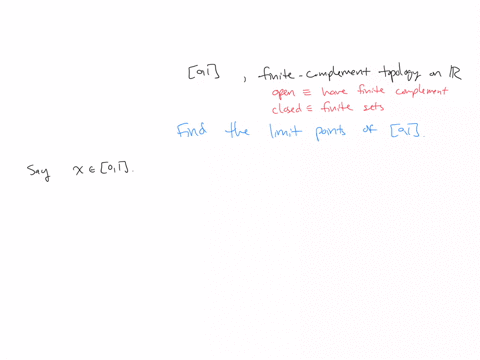 [0,1] , finite-complement topology on ℝ
open ≡ have finite complement
closed ≡ finite sets
Find the limit points of [0,1].
Say x ∈ [0,1].